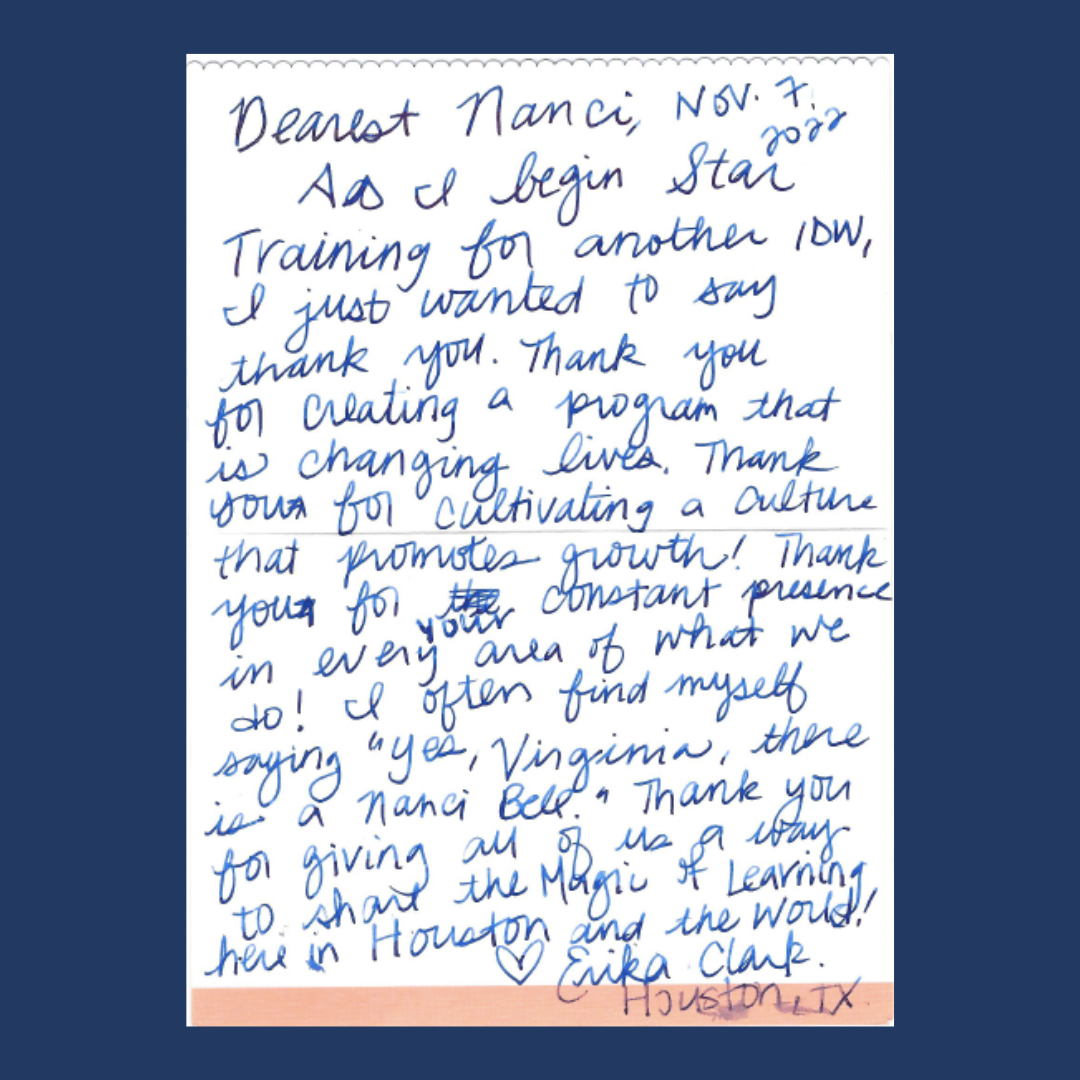 Dearest Nanci, Nov. 7, 2022
As I begin Star
Training for another IDW,
I just wanted to say
thank you. Thank you
for creating a program that
is changing lives. Thank
you for cultivating a culture
that promotes growth! Thank
you for your constant presence
in every area of what we
do! I often find myself
saying "Yes, Virginia, there
is a Nanci Bell." Thank you
for giving all of us a way
to share the Magic of Learning
here in Houston and the World!
♡ Erika Clark.
Houston, TX.